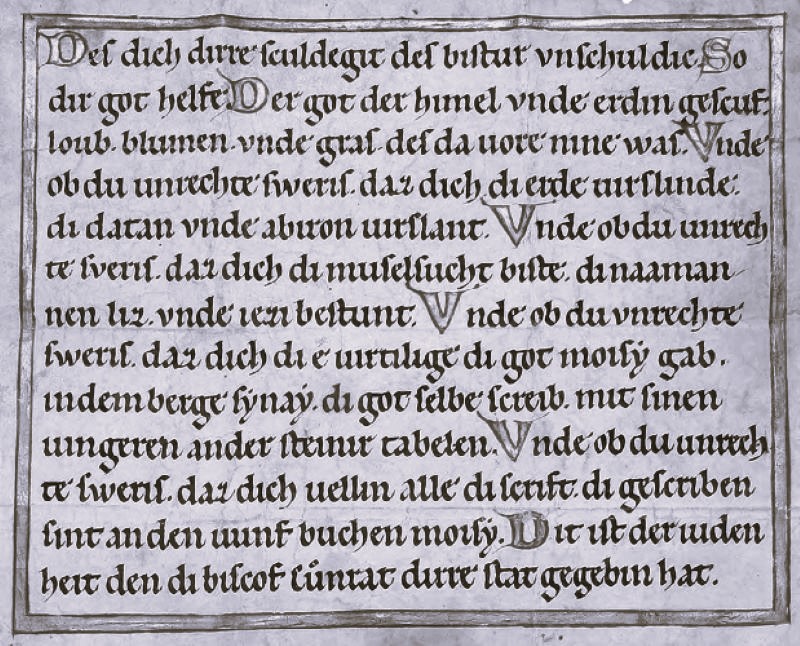 Des dich dirre sculdegit des bistur vnschuldic. So
dir got helfe. Der got der himel vnde erdin gescuf.
loub. blumen. vnde gras. des da uore nine was. Vnde
ob du unrechte sweris. daz dich di erde uirslinde.
di datan vnde abiron uirslant. Vnde ob du unrech
te sveris. daz dich di muselsucht biste. di naaman
nen liz. vnde iezi bestunt. Vnde ob du vnrechte
sweris. daz dich di e uirtilige di got moisẏ gab.
in dem berge sẏnaẏ. di got selbe screib. mit sinen
uingeren an der steinir tabelen. Vnde ob du unrech
te sweris. daz dich uellin alle di scrift. di gescriben
sint an den uunf buchen moisẏ. Dit ist der iuden
heit den di biscof cůnrat dirre stat gegebin hat.